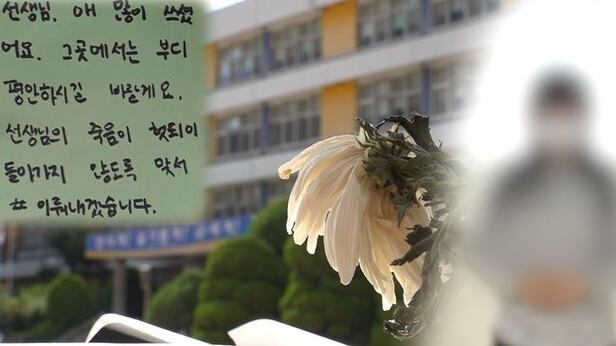 선생님. 애 많이 쓰셨
어요. 그곳에서는 부디
평안하시길 바랄게요.
선생님의 죽음이 헛되이
돌아가지 않도록 맞서
# 이뤄내겠습니다.